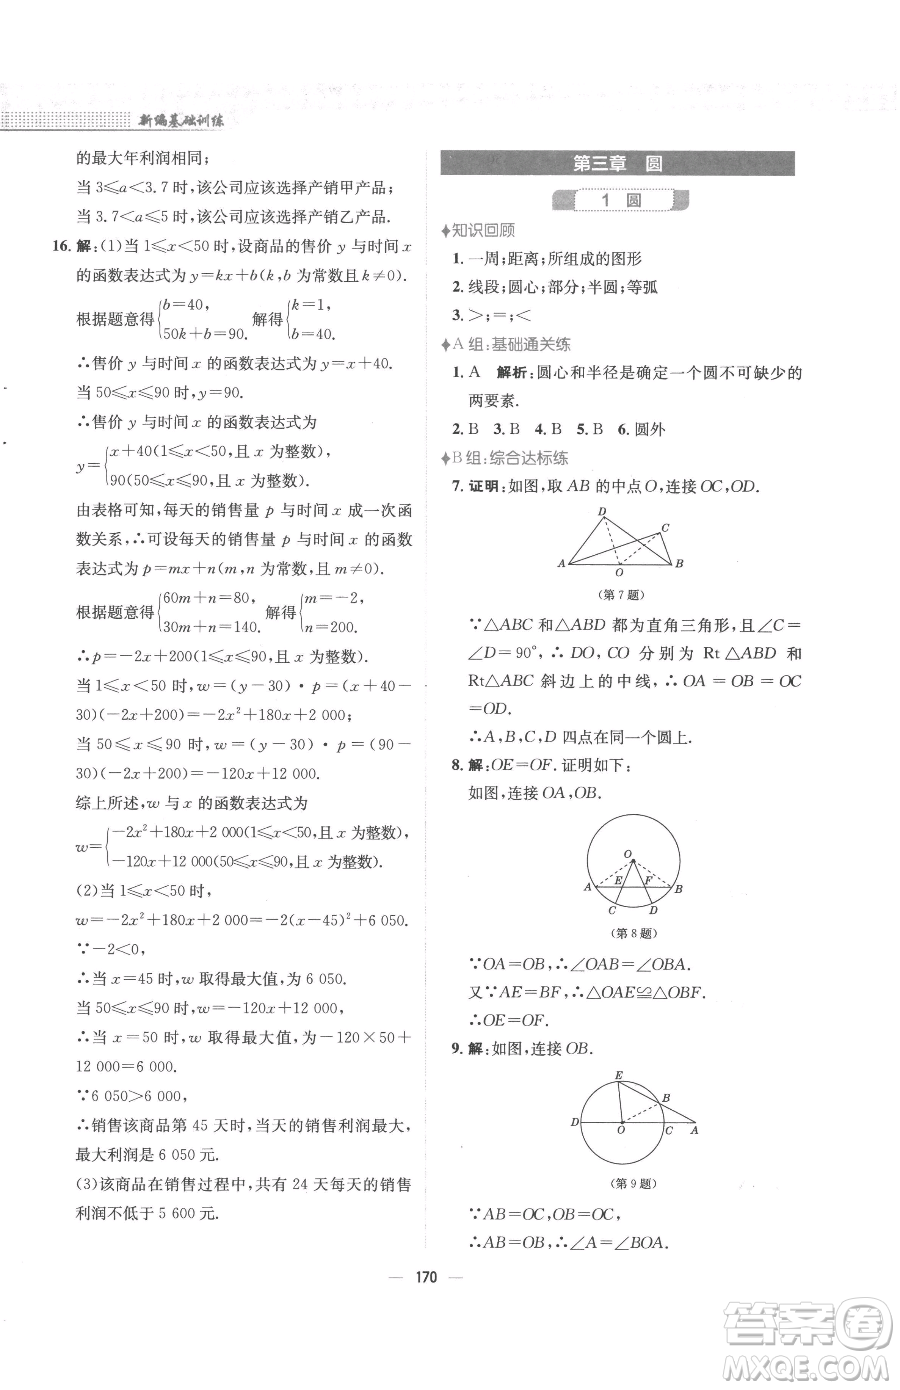 新编基础训练
的最大年利润相同;
当 3≤a<3.7 时,该公司应该选择产销甲产品;
当 3.7<a≤5 时,该公司应该选择产销乙产品.
16. 解:(1)当 1≤x<50 时,设商品的售价 y 与时间 x
的函数表达式为 y=kx+b(k,b 为常数且 k≠0).
根据题意得{b=40, 50k+b=90. 解得{k=1, b=40.
∴售价 y 与时间 x 的函数表达式为 y=x+40.
当 50≤x≤90 时,y=90.
∴售价 y 与时间 x 的函数表达式为
y={x+40(1≤x<50,且 x 为整数), 90(50≤x≤90,且 x 为整数).
由表格可知,每天的销售量 p 与时间 x 成一次函
数关系,∴可设每天的销售量 p 与时间 x 的函数
表达式为 p=mx+n(m,n 为常数,且 m≠0).
根据题意得{60m+n=80, 30m+n=140. 解得{m=-2, n=200.
∴p=-2x+200(1≤x≤90,且 x 为整数).
当 1≤x<50 时,w=(y-30)·p=(x+40-
30)(-2x+200)=-2x²+180x+2 000;
当 50≤x≤90 时,w=(y-30)·p=(90-
30)(-2x+200)=-120x+12 000.
综上所述,w 与 x 的函数表达式为
w={-2x²+180x+2 000(1≤x<50,且 x 为整数), -120x+12 000(50≤x≤90,且 x 为整数).
(2)当 1≤x<50 时,
w=-2x²+180x+2 000=-2(x-45)²+6 050.
∵-2<0,
∴当 x=45 时,w 取得最大值,为 6 050.
当 50≤x≤90 时,w=-120x+12 000,
∴当 x=50 时,w 取得最大值,为-120×50+
12 000=6 000.
∵6 050>6 000,
∴销售该商品第 45 天时,当天的销售利润最大,
最大利润是 6 050 元.
(3)该商品在销售过程中,共有 24 天每天的销售
利润不低于 5 600 元.
第三章 圆
1 圆
知识回顾
1. 一周;距离;所组成的图形
2. 线段;圆心;部分;半圆;等弧
3. >;=;<
A 组:基础通关练
1. A 解析:圆心和半径是确定一个圆不可缺少的
两要素.
2. B 3. B 4. B 5. B 6. 圆外
B 组:综合达标练
7. 证明:如图,取 AB 的中点 O,连接 OC,OD.
D
C
A
O
B
(第 7 题)
∵△ABC 和△ABD 都为直角三角形,且∠C=
∠D=90°,∴DO,CO 分别为 Rt△ABD 和
Rt△ABC 斜边上的中线,∴OA=OB=OC
=OD.
∴A,B,C,D 四点在同一个圆上.
8. 解:OE=OF.证明如下:
如图,连接 OA,OB.
O
A
E
F
B
C
D
(第 8 题)
∵OA=OB,∴∠OAB=∠OBA.
又∵AE=BF,∴△OAE≌△OBF.
∴OE=OF.
9. 解:如图,连接 OB.
E
B
D
O
C
A
(第 9 题)
∵AB=OC,OB=OC,
∴AB=OB,∴∠A=∠BOA.
170
答案圈
MXQE.COM